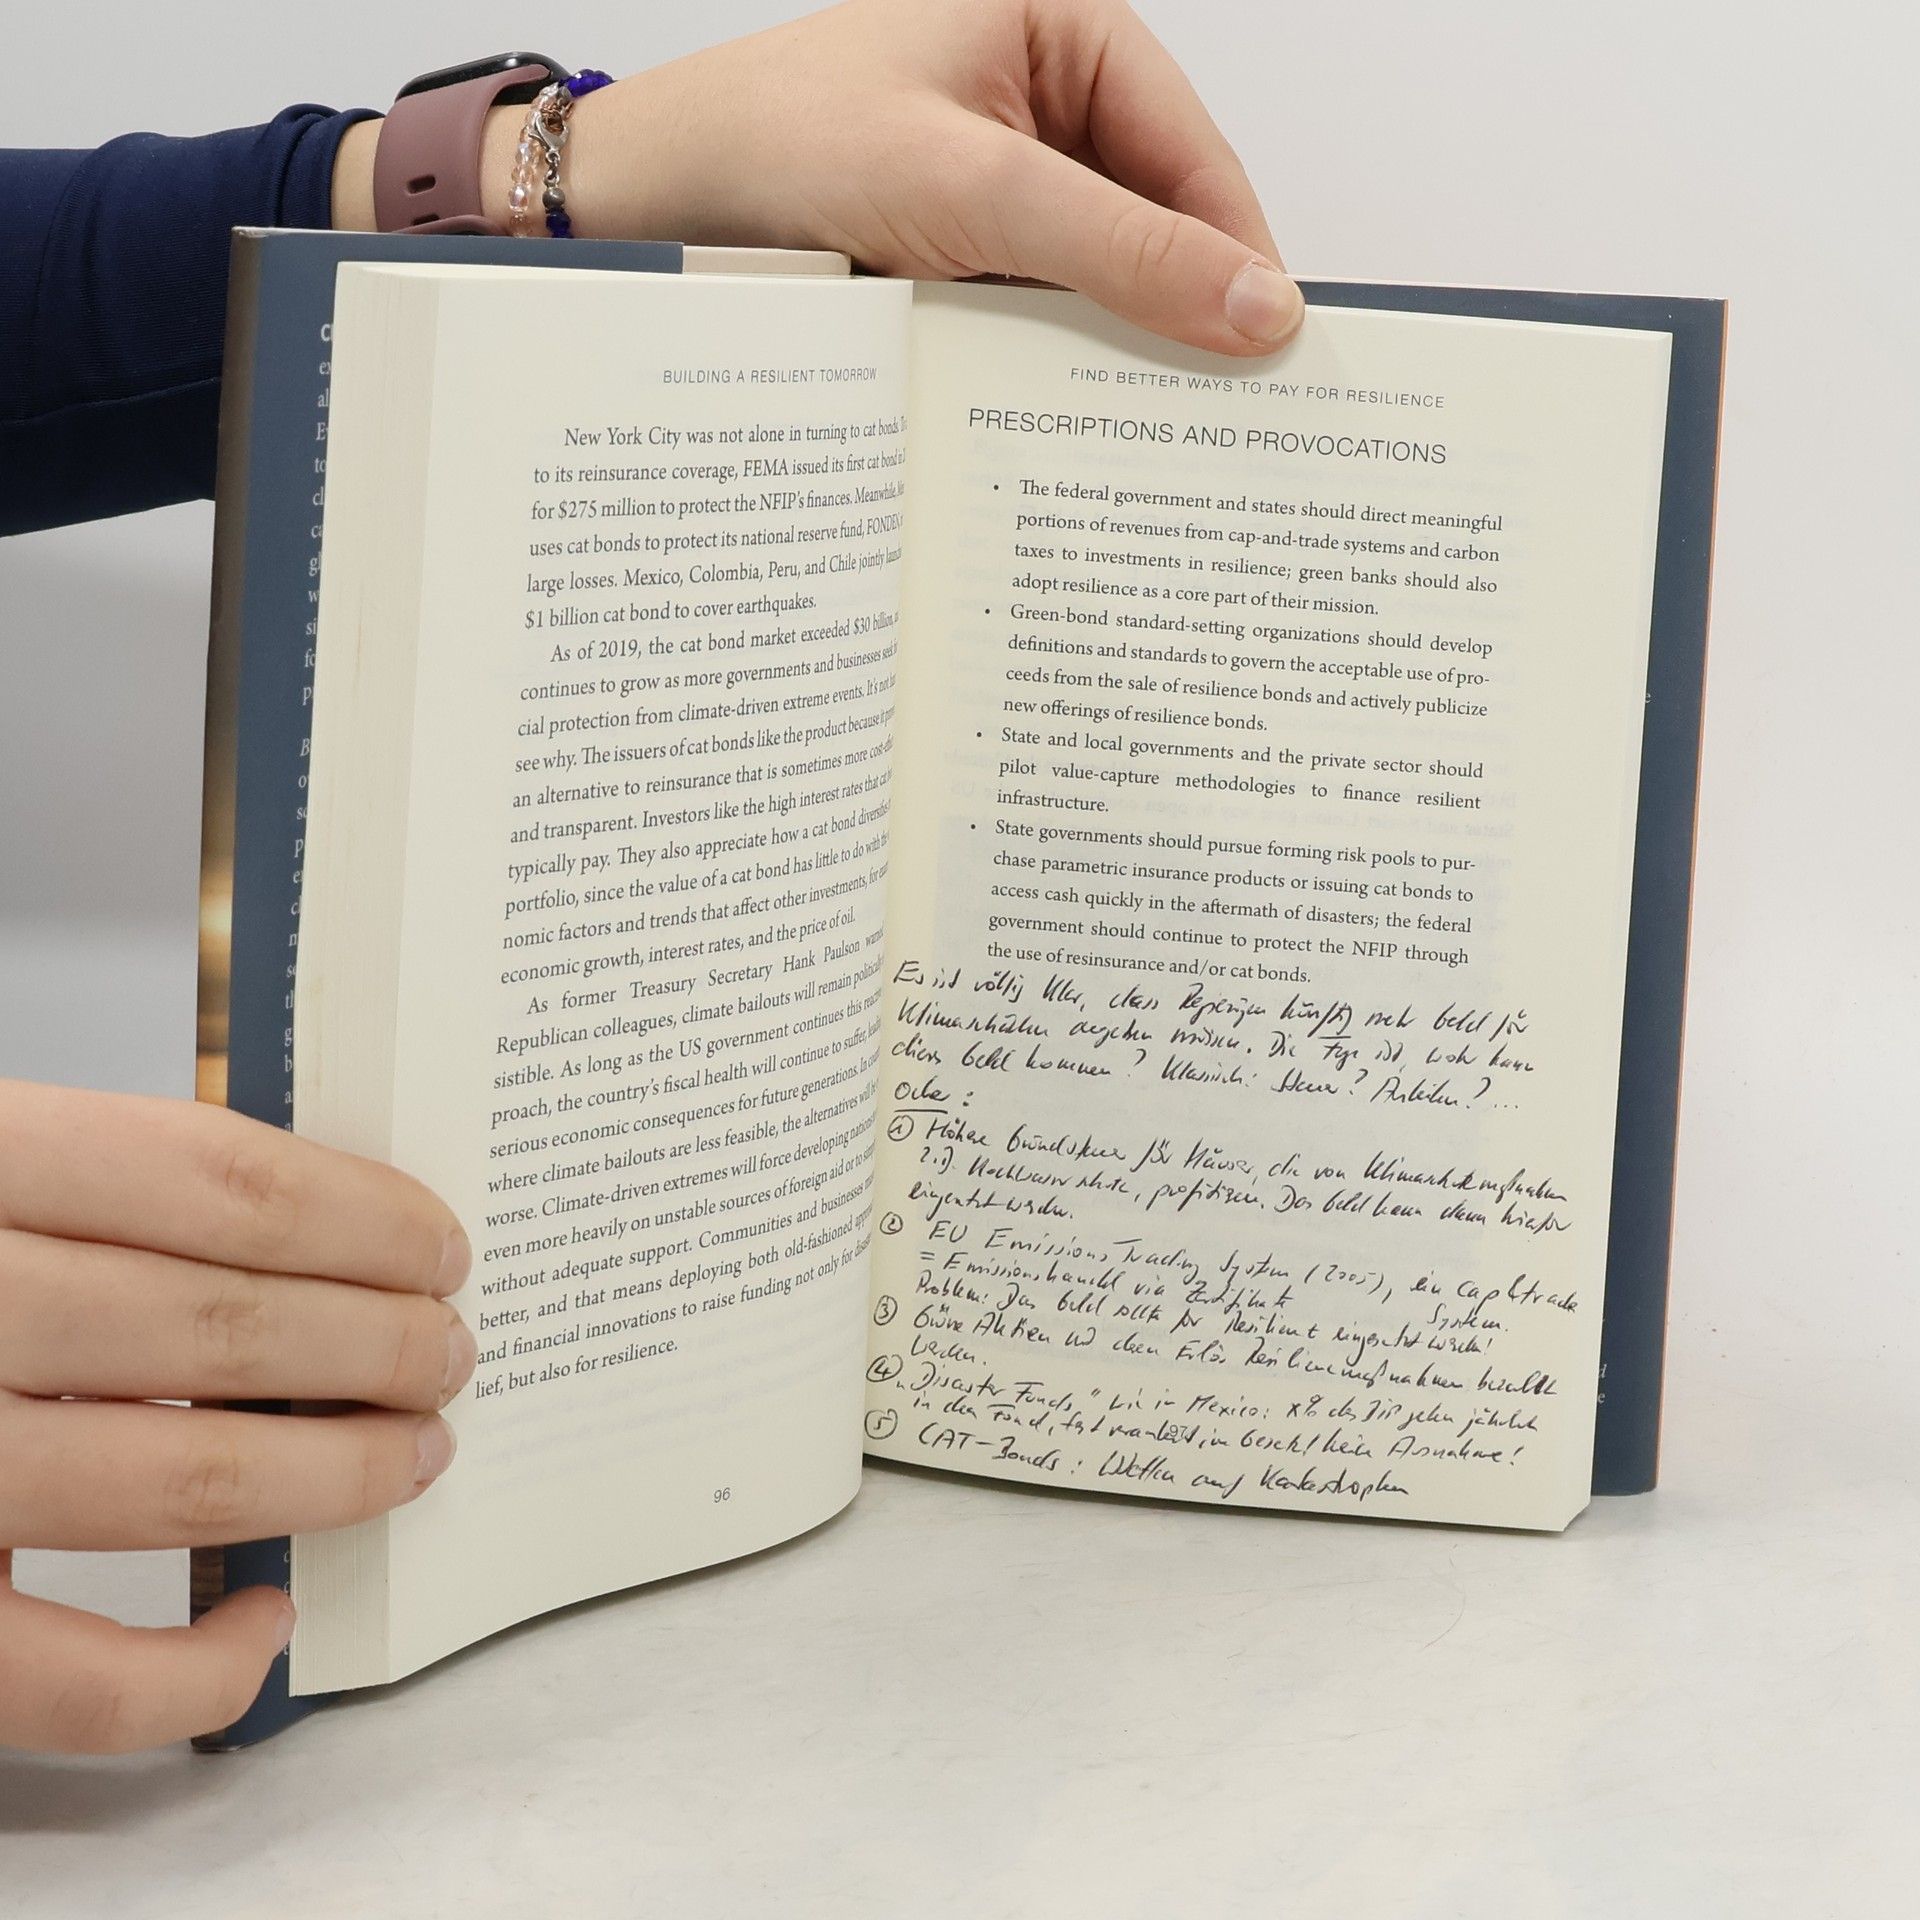 BUILDING A RESILIENT TOMORROW
New York City was not alone in turning to cat bonds.
to its reinsurance coverage, FEMA issued its first cat bond in
for $275 million to protect the NFIP's finances. Meanwhile,
uses cat bonds to protect its national reserve fund, FONDEN,
large losses. Mexico, Colombia, Peru, and Chile jointly
$1 billion cat bond to cover earthquakes.
As of 2019, the cat bond market exceeded $30 billion,
continues to grow as more governments and businesses seek
cial protection from climate-driven extreme events. It's not
see why. The issuers of cat bonds like the product because it
an alternative to reinsurance that is sometimes more
and transparent. Investors like the high interest rates that cat
typically pay. They also appreciate how a cat bond
portfolio, since the value of a cat bond has little to do with the
nomic factors and trends that affect other investments, for
economic growth, interest rates, and the price of oil.
As former Treasury Secretary Hank Paulson
Republican colleagues, climate bailouts will remain
sistible. As long as the US government continues this
proach, the country's fiscal health will continue to suffer,
serious economic consequences for future generations. In
where climate bailouts are less feasible, the alternatives will be
worse. Climate-driven extremes will force developing
even more heavily on unstable sources of foreign aid or to
without adequate support. Communities and businesses
better, and that means deploying both old-fashioned
and financial innovations to raise funding not only for
lief, but also for resilience.
96
FIND BETTER WAYS TO PAY FOR RESILIENCE
PRESCRIPTIONS AND PROVOCATIONS
• The federal government and states should direct meaningful
portions of revenues from cap-and-trade systems and carbon
taxes to investments in resilience; green banks should also
adopt resilience as a core part of their mission.
• Green-bond standard-setting organizations should develop
definitions and standards to govern the acceptable use of pro-
ceeds from the sale of resilience bonds and actively publicize
new offerings of resilience bonds.
• State and local governments and the private sector should
pilot value-capture methodologies to finance resilient
infrastructure.
• State governments should pursue forming risk pools to pur-
chase parametric insurance products or issuing cat bonds to
access cash quickly in the aftermath of disasters; the federal
government should continue to protect the NFIP through
the use of resinsurance and/or cat bonds.
Es ist völlig klar, dass Regierungen künftig mehr Geld für
Klimaschäden ausgeben müssen. Die Frage ist, woher kann
dieses Geld kommen? Klassisch: Steuer? Anleihen? ...
Oder:
① Höhere Grundsteuer für Häuser, die von Klimaschutzmaßnahmen
z.B. Hochwasserschutz, profitieren. Das Geld kann dann hierfür
eingesetzt werden.
② EU Emissions Trading System (2005), ein cap & trade
System.
= Emissionshandel via Zertifikate
Problem: Das Geld sollte für Resilienz eingesetzt werden!
③ Grüne Aktien und dem Erlös Resilienzmaßnahmen bezahlt
werden.
④ „Disaster Funds" wie in Mexico: x% des BIP gehen jährlich
in den Fond, fest verankert im Gesetz! keine Ausnahme!
⑤ CAT-Bonds: Wetten auf Katastrophen